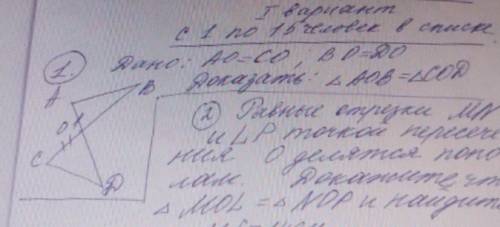 I вариант
с 1 по 15 человек в списке
1 Дано: AO=CO, BO=DO
Доказать: △AOB=△COD
A
B
O
C
D
2 Равные отрезки MN
и LP точкой пересече
ния O делятся попо
лам. Докажите, чт
△MOL=△NOP и найдите